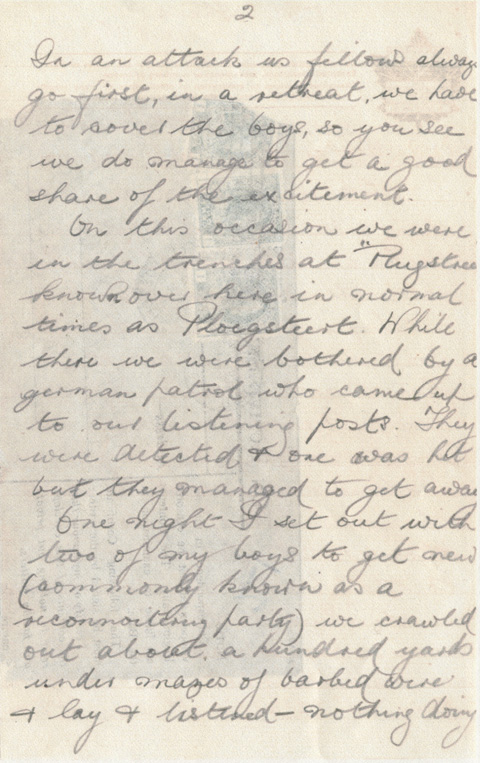 2
In an attack us fellows always
go first, in a retreat, we have
to cover the boys, so you see
we do manage to get a good
share of the excitement.
On this occasion we were
in the trenches at "Plugstree
known over here in normal
times as Ploegsteert. While
there we were bothered by a
german patrol who came up
to our listening posts. They
were detected & one was hit
but they managed to get away
One night I set out with
two of my boys to get new
(commonly known as a
reconnoitering party) we crawled
out about. a hundred yards
under mazes of barbed wire
& lay & listened - nothing doing